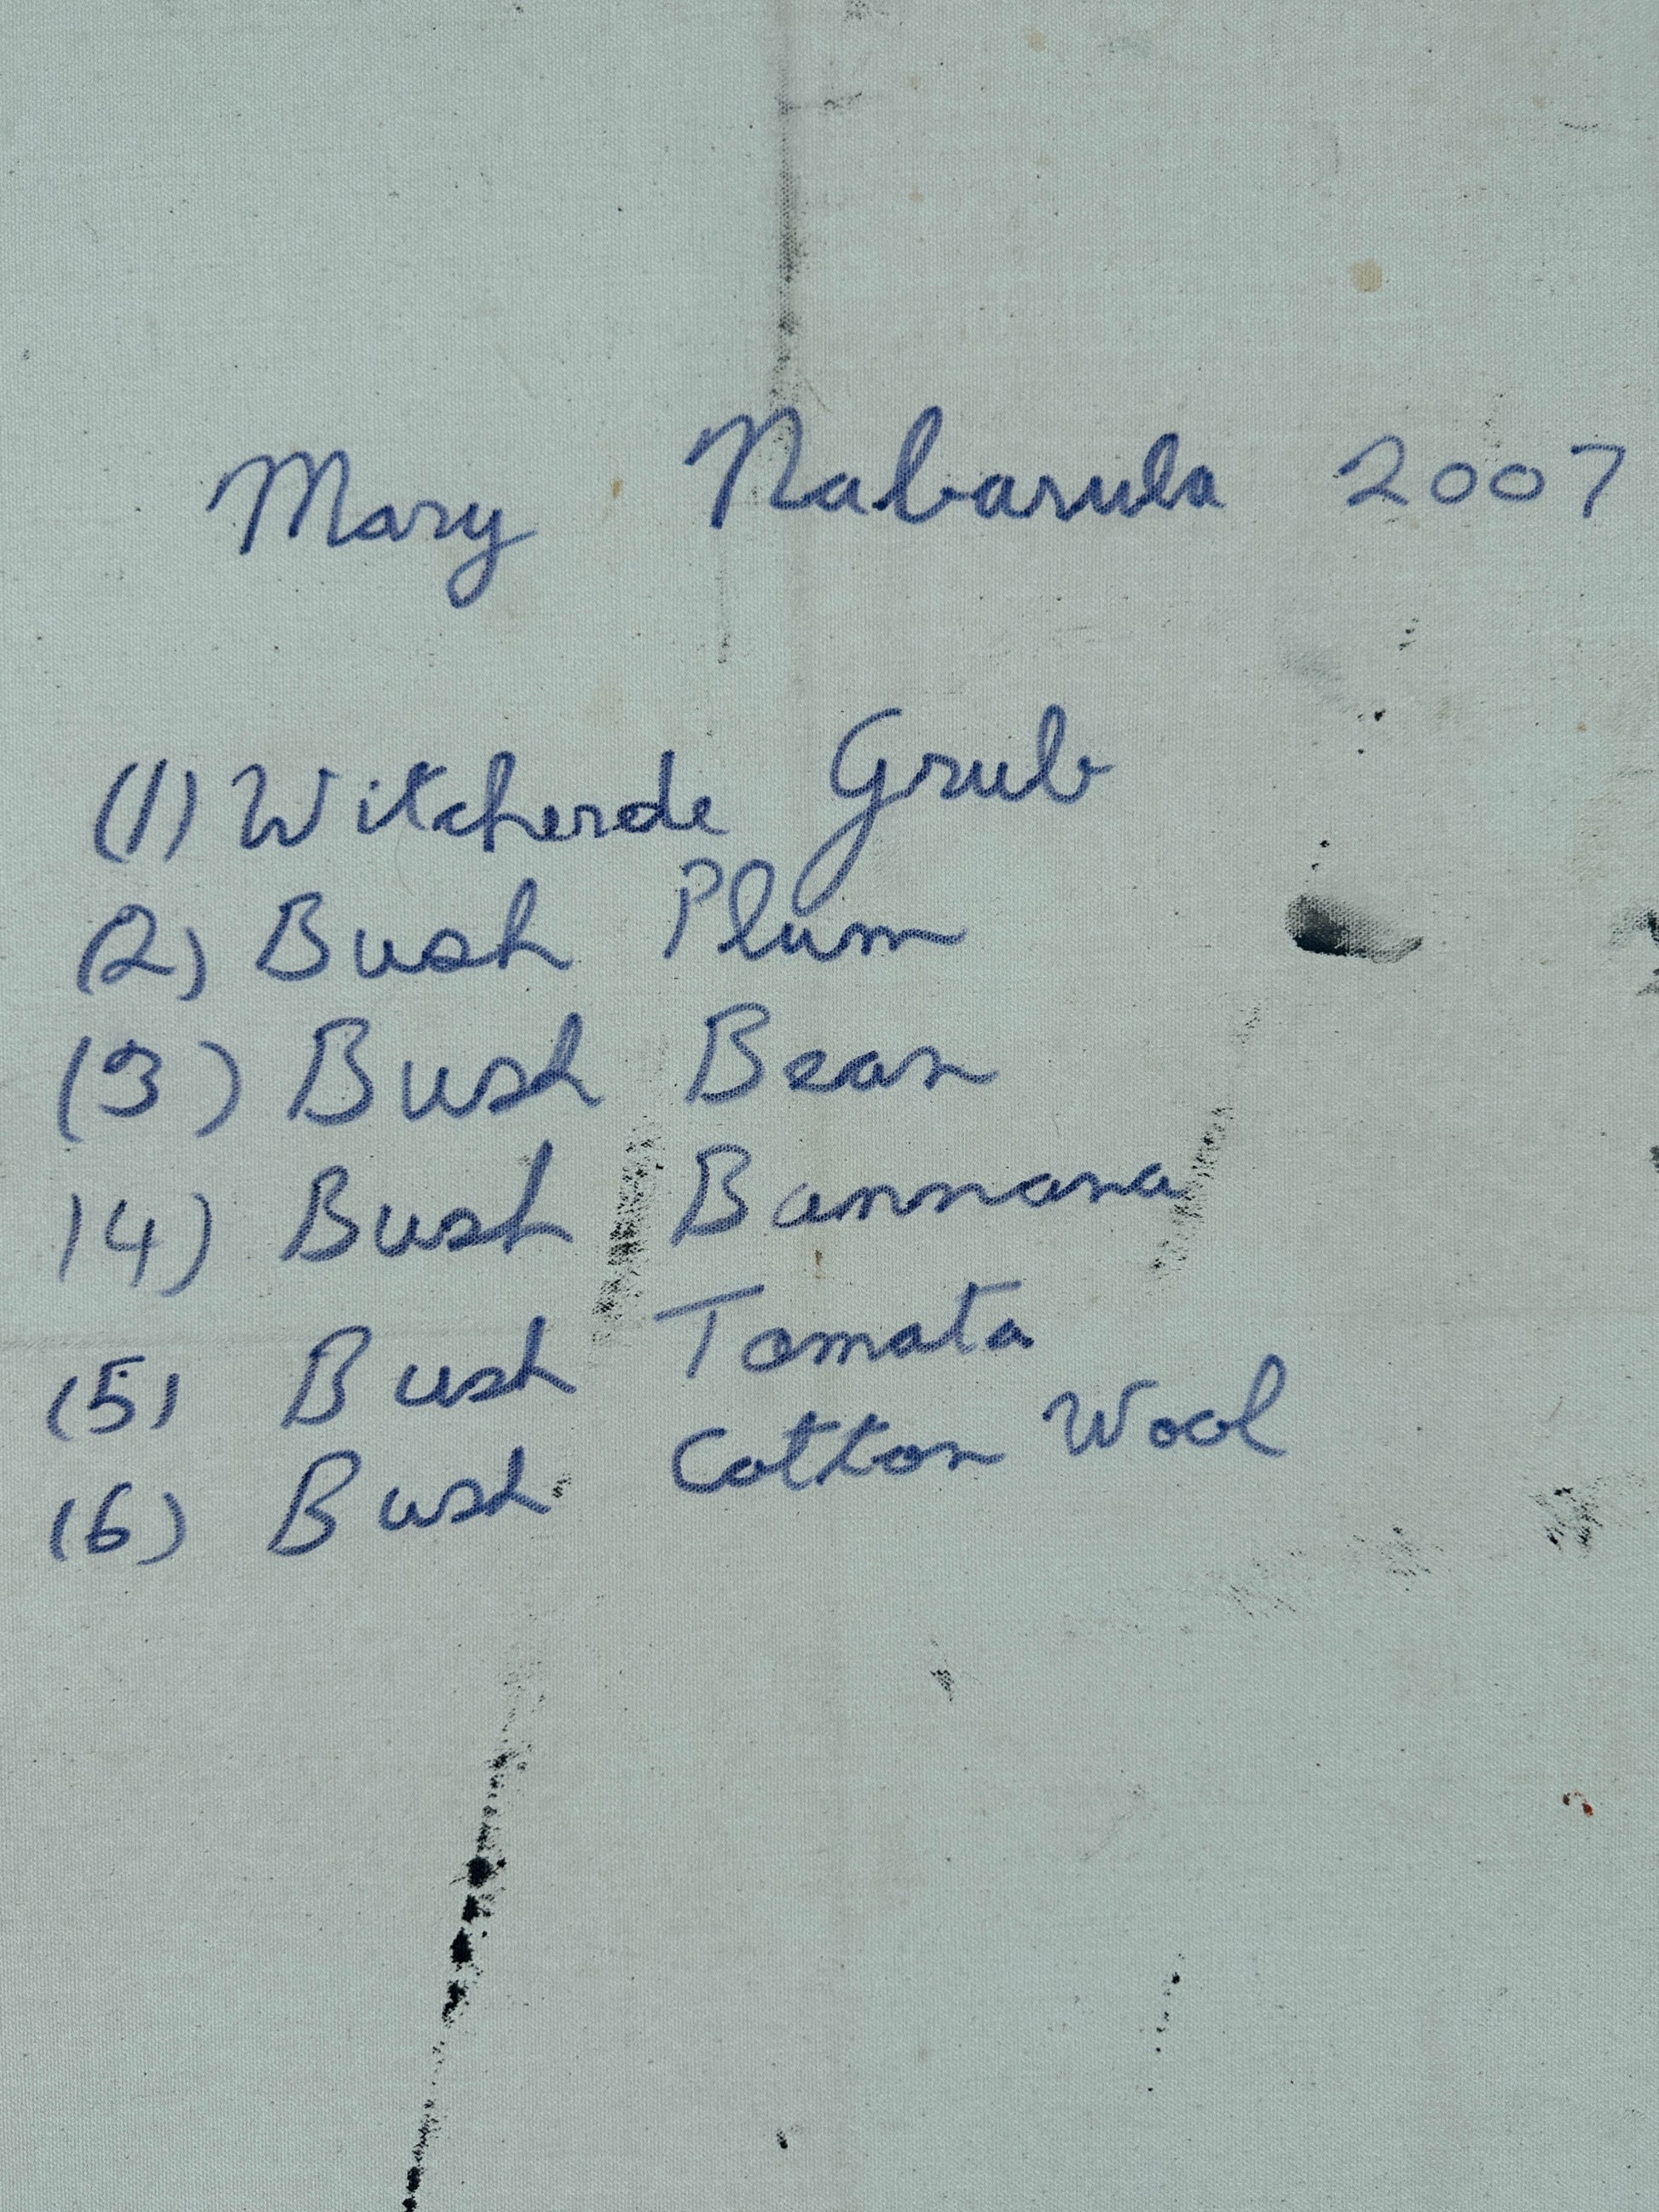 Mary Nabarula 2007
(1) Witcherde Grub
(2) Bush Plum
(3) Bush Bean
(4) Bush Bannana
(5) Bush Tomata
(6) Bush Cotton Wool